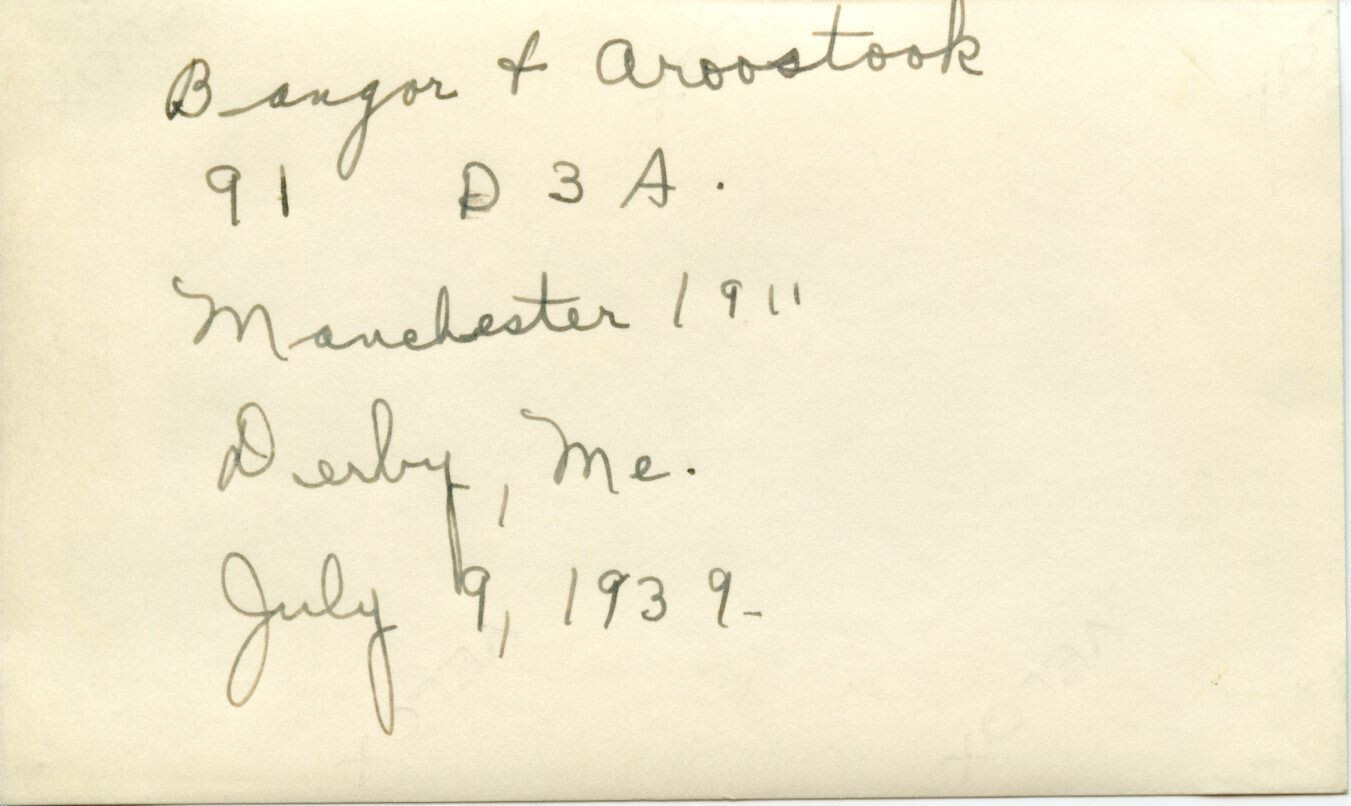 Bangor & Aroostook
91 D3A.
Manchester 1911
Derby, Me.
July 9, 1939-